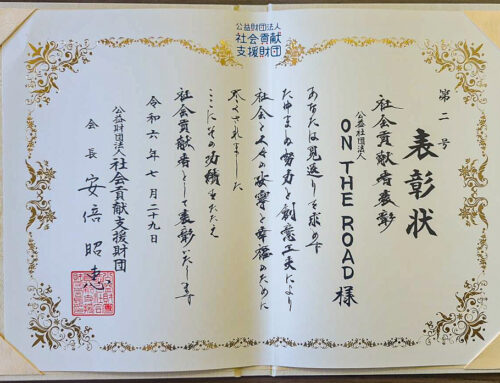 公益財団法人
社会貢献
支援財団
第二号
表彰状
社会貢献者表彰
公益社団法人
ON THE ROAD 様
あなたは見返りを求めず
たゆまぬ努力と創意工夫により
社会と人々の安寧と幸福のために
尽くされました
ここにその功績をたたえ
社会貢献者として表彰いたします
令和六年七月二十九日
公益財団法人 社会貢献支援財団
会長 安倍昭恵